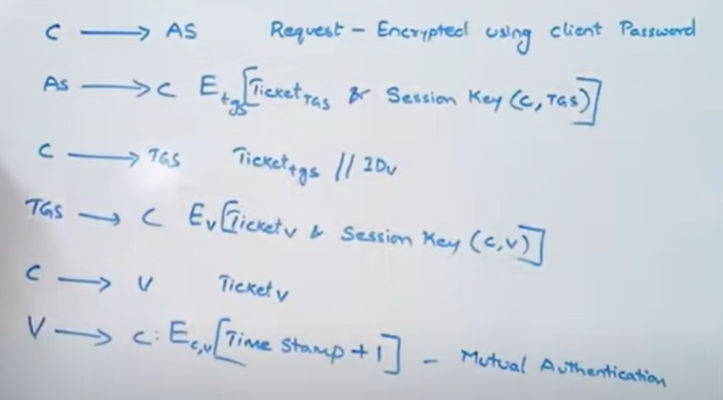 C → AS Request - Encrypted using client Password
AS → C E_tgs[Ticket_TGS & Session Key (C, TGS)]
C → TGS Ticket_tgs // IDv
TGS → C E_v[Ticket_v & Session Key (C,V)]
C → V Ticket_v
V → C: E_c,v[Time Stamp + 1] - Mutual Authentication